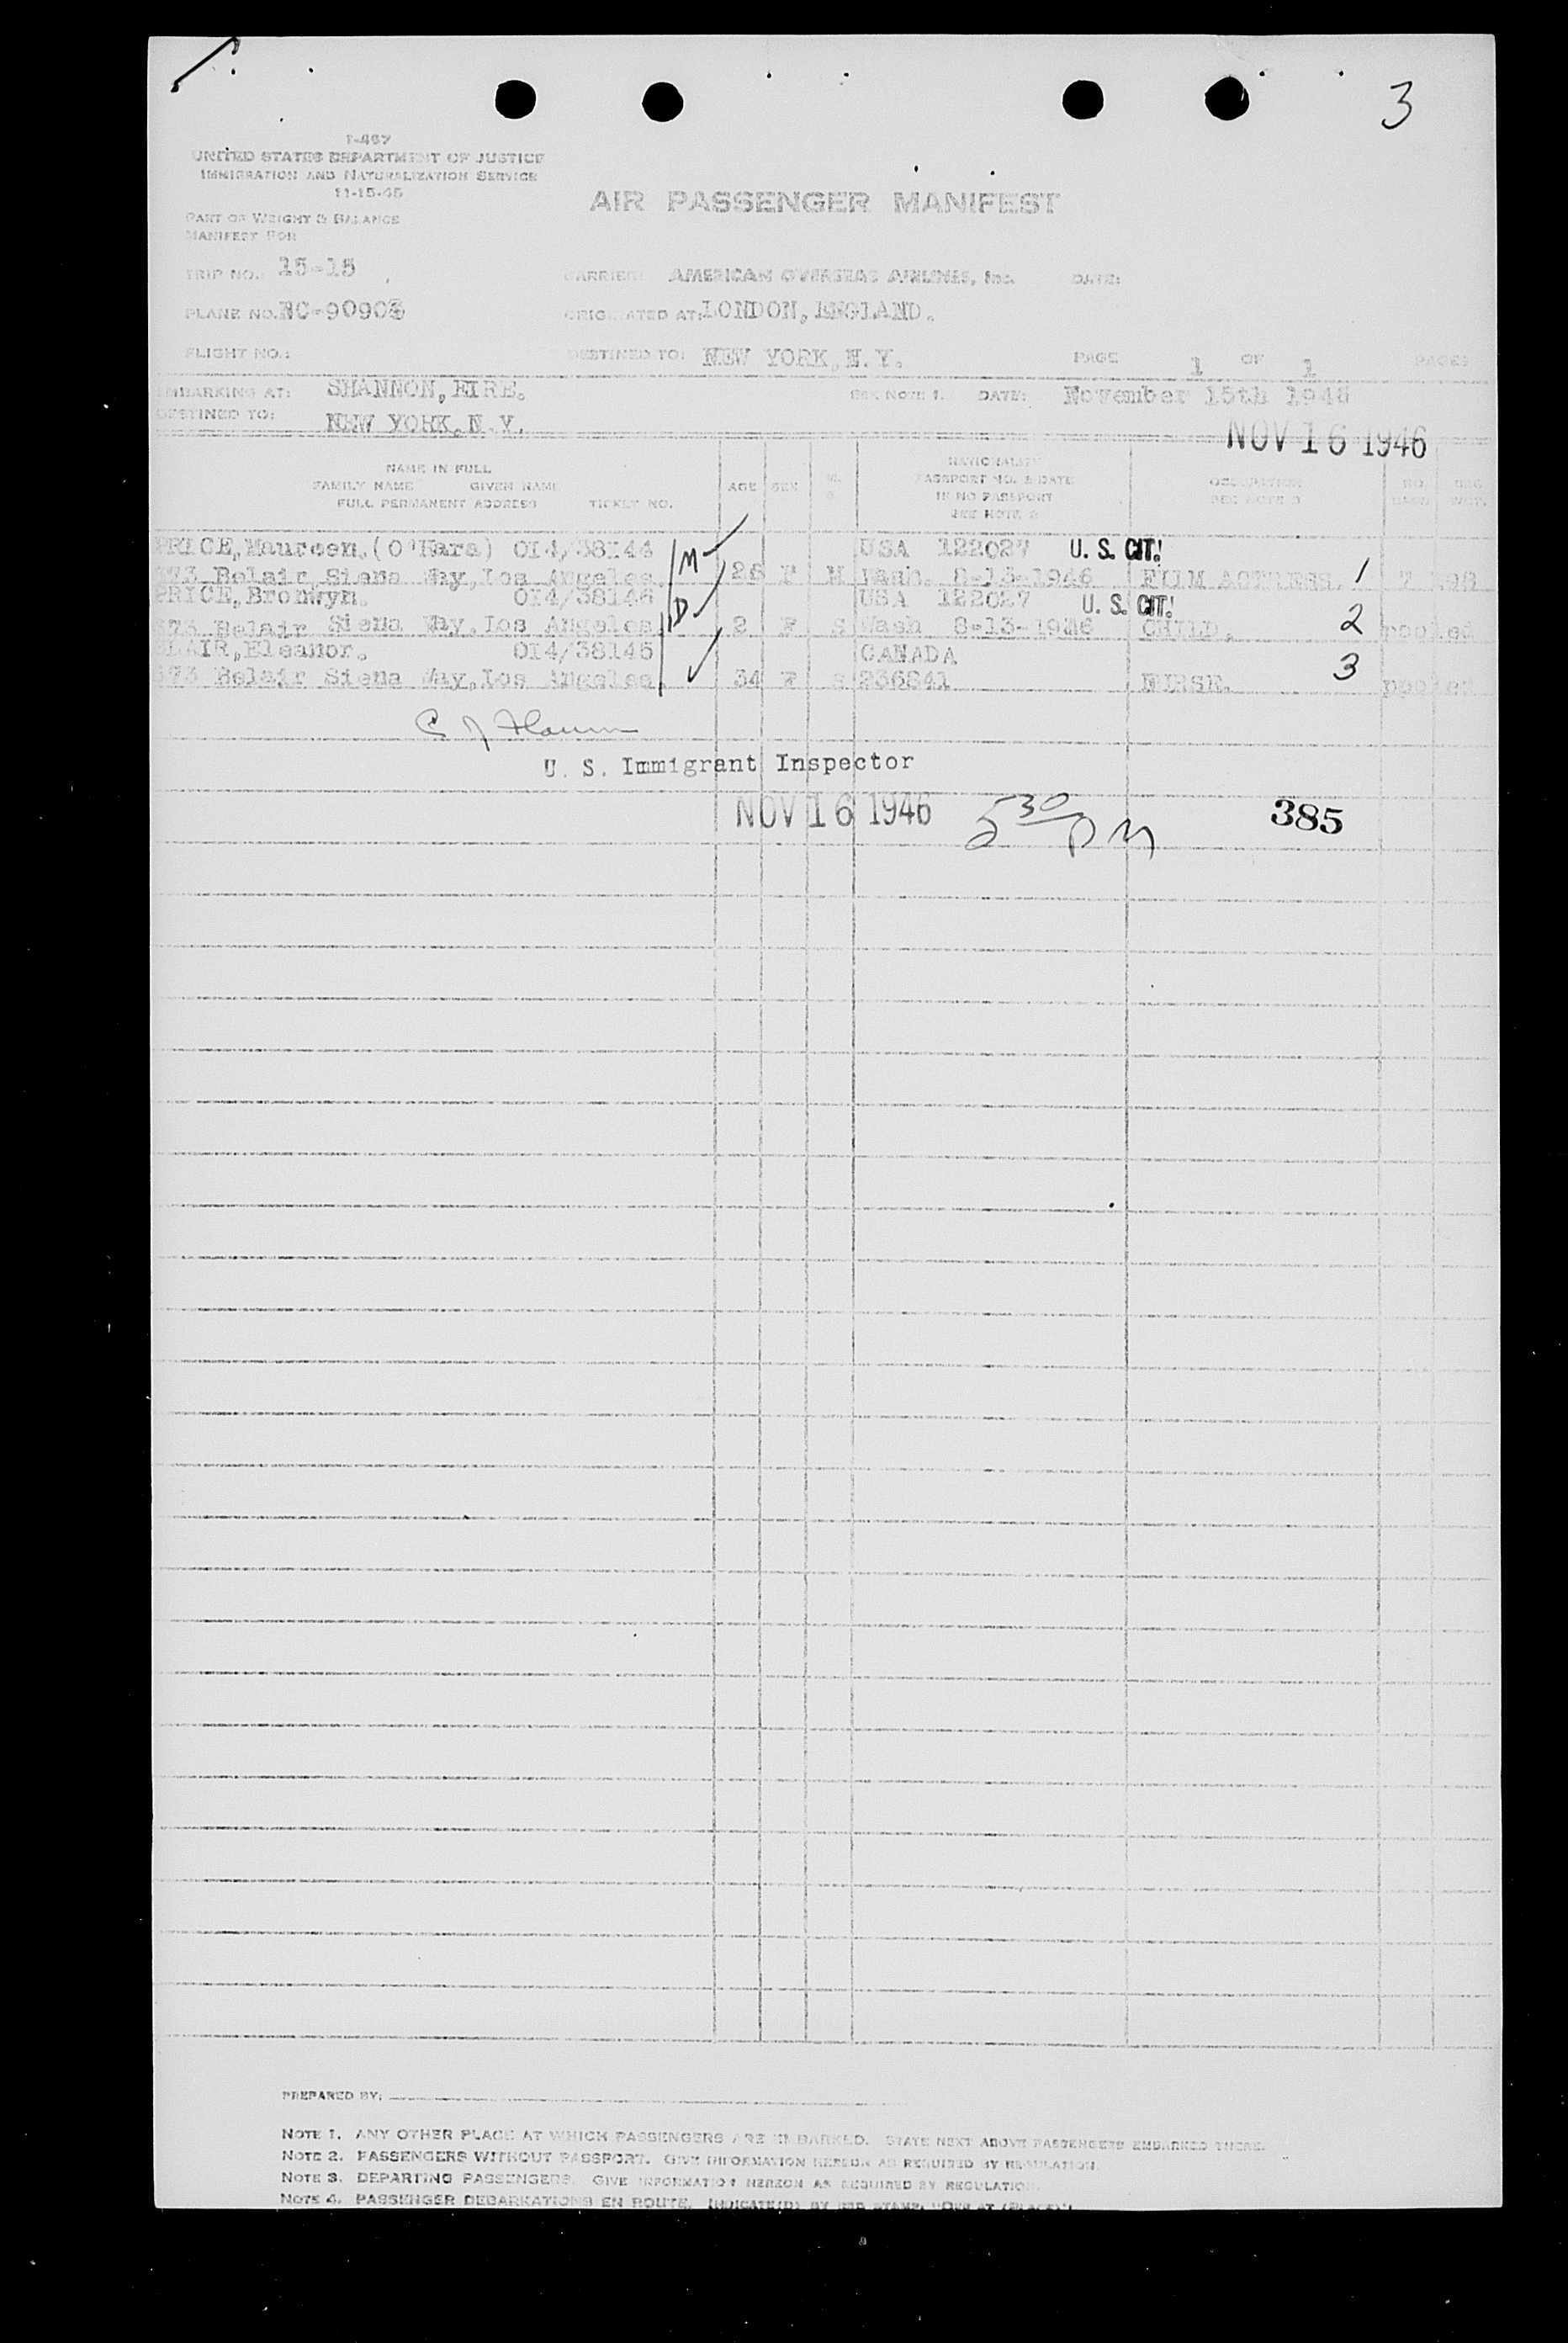 3
I-467
UNITED STATES DEPARTMENT OF JUSTICE
IMMIGRATION AND NATURALIZATION SERVICE
11-15-45
AIR PASSENGER MANIFEST
PART OF WEIGHT & BALANCE
MANIFEST FOR
TRIP NO. 15-15 CARRIER: AMERICAN OVERSEAS AIRLINES, Inc. DATE:
PLANE NO. NC-90903 ORIGINATED AT: LONDON, ENGLAND.
FLIGHT NO.: DESTINED TO: NEW YORK, N.Y. PAGE 1 OF 1 PAGES
EMBARKING AT: SHANNON, EIRE. SEE NOTE 1. DATE: November 15th 1946
DESTINED TO: NEW YORK, N.Y.
NOV 16 1946
NAME IN FULL
FAMILY NAME GIVEN NAME
FULL PERMANENT ADDRESS TICKET NO.
AGE SEX M. S.
NATIONALITY
PASSPORT NO. & DATE
IF NO PASSPORT
SEE NOTE 2
OCCUPATION
SEE NOTE 3
PRICE, Maureen, (O'Hara) 014/38144 M USA 122027 U. S. CIT.
673 Belair Siena Way, Los Angeles. 26 F M Wash. 8-13-1946 FILM ACTRESS. 1
PRICE, Bronwyn. 014/38146 D USA 122027 U. S. CIT.
673 Belair Siena Way, Los Angeles. 2 F S Wash 8-13-1946 CHILD. 2 pooled
BLAIR, Eleanor. 014/38145 CANADA
673 Belair Siena Way, Los Angeles. 34 F S 236841 NURSE. 3 pooled
U. S. Immigrant Inspector
NOV 16 1946 5 30 PM 385
PREPARED BY:
NOTE 1. ANY OTHER PLACE AT WHICH PASSENGERS ARE EMBARKED. STATE NEXT ABOVE PASSENGERS EMBARKED THERE.
NOTE 2. PASSENGERS WITHOUT PASSPORT. GIVE INFORMATION HEREON AS REQUIRED BY REGULATION.
NOTE 3. DEPARTING PASSENGERS. GIVE INFORMATION HEREON AS REQUIRED BY REGULATION.
NOTE 4. PASSENGER DEBARKATIONS EN ROUTE. INDICATE(D) BY